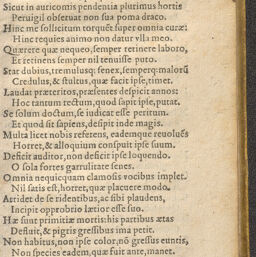 Sicut in auricomis pendentia plurimus hortis
Peruigil obseruat non sua poma draco.
Hinc me sollicitum torquẽt super omnia curæ:
Hinc requies animo non datur vlla meo.
Quærere quæ nequeo, semper retinere laboro,
Et retinens semper nil tenuisse puto.
Stat dubius, tremulusq; senex, semperq; malorũ
Credulus, & stultus, quæ facit ipse, timet.
Laudat præteritos, præsentes despicit annos:
Hoc tantum rectum, quod sapit ipse, putat.
Se solum doctum, se iudicat esse peritum.
Et quod sit sapiens, despit inde magis.
Multa licet nobis referens, eademque reuoluẽs
Horret, & alloquium conspuit ipse suum.
Deficit auditor, non deficit ipse loquendo.
O sola fortes garrulitate senes.
Omnia nequicquam clamosis vocibus implet.
Nil satis est, horret, quæ placuere modo.
Arridet de se ridentibus, ac sibi plaudens,
Incipit opprobrio lætior esse suo.
Hæ sunt primitiæ mortis: his partibus ætas
Defluit, & pigris gressibus ima petit.
Non habitus, non ipse color, nõ gressus euntis,
Non species eadem, quæ fuit ante, manet.